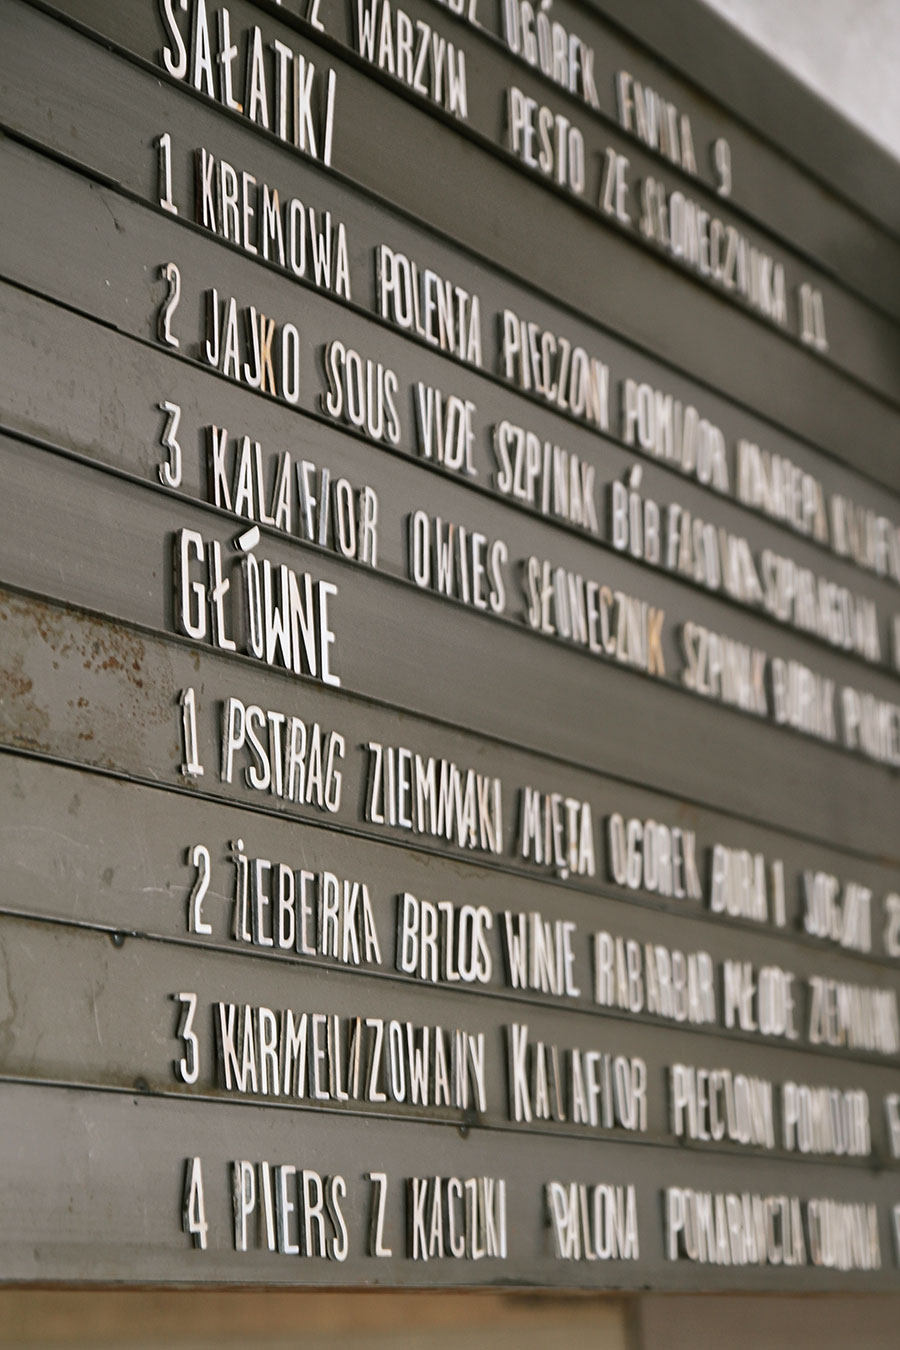 OGÓREK FAVITA 9
Z WARZYW PESTO ZE SŁONECZNIKA 11
SAŁATKI
1 KREMOWA POLENTA PIECZONY POMIDOR
2 JAJKO SOUS VIDE SZPINAK BÓB FASOLKA SZPARAGOWA
3 KALAFIOR OWIES SŁONECZNIK SZPINAK BURAK
GŁÓWNE
1 PSTRĄG ZIEMNIAKI MIĘTA OGOREK BURAK JOGURT
2 ŻEBERKA BRZOS WINIE RABARBAR MŁODE
3 KARMELIZOWANY KALAFIOR PIECZONY POMIDOR
4 PIERS Z KACZKI PALONA POMARAŃCZA